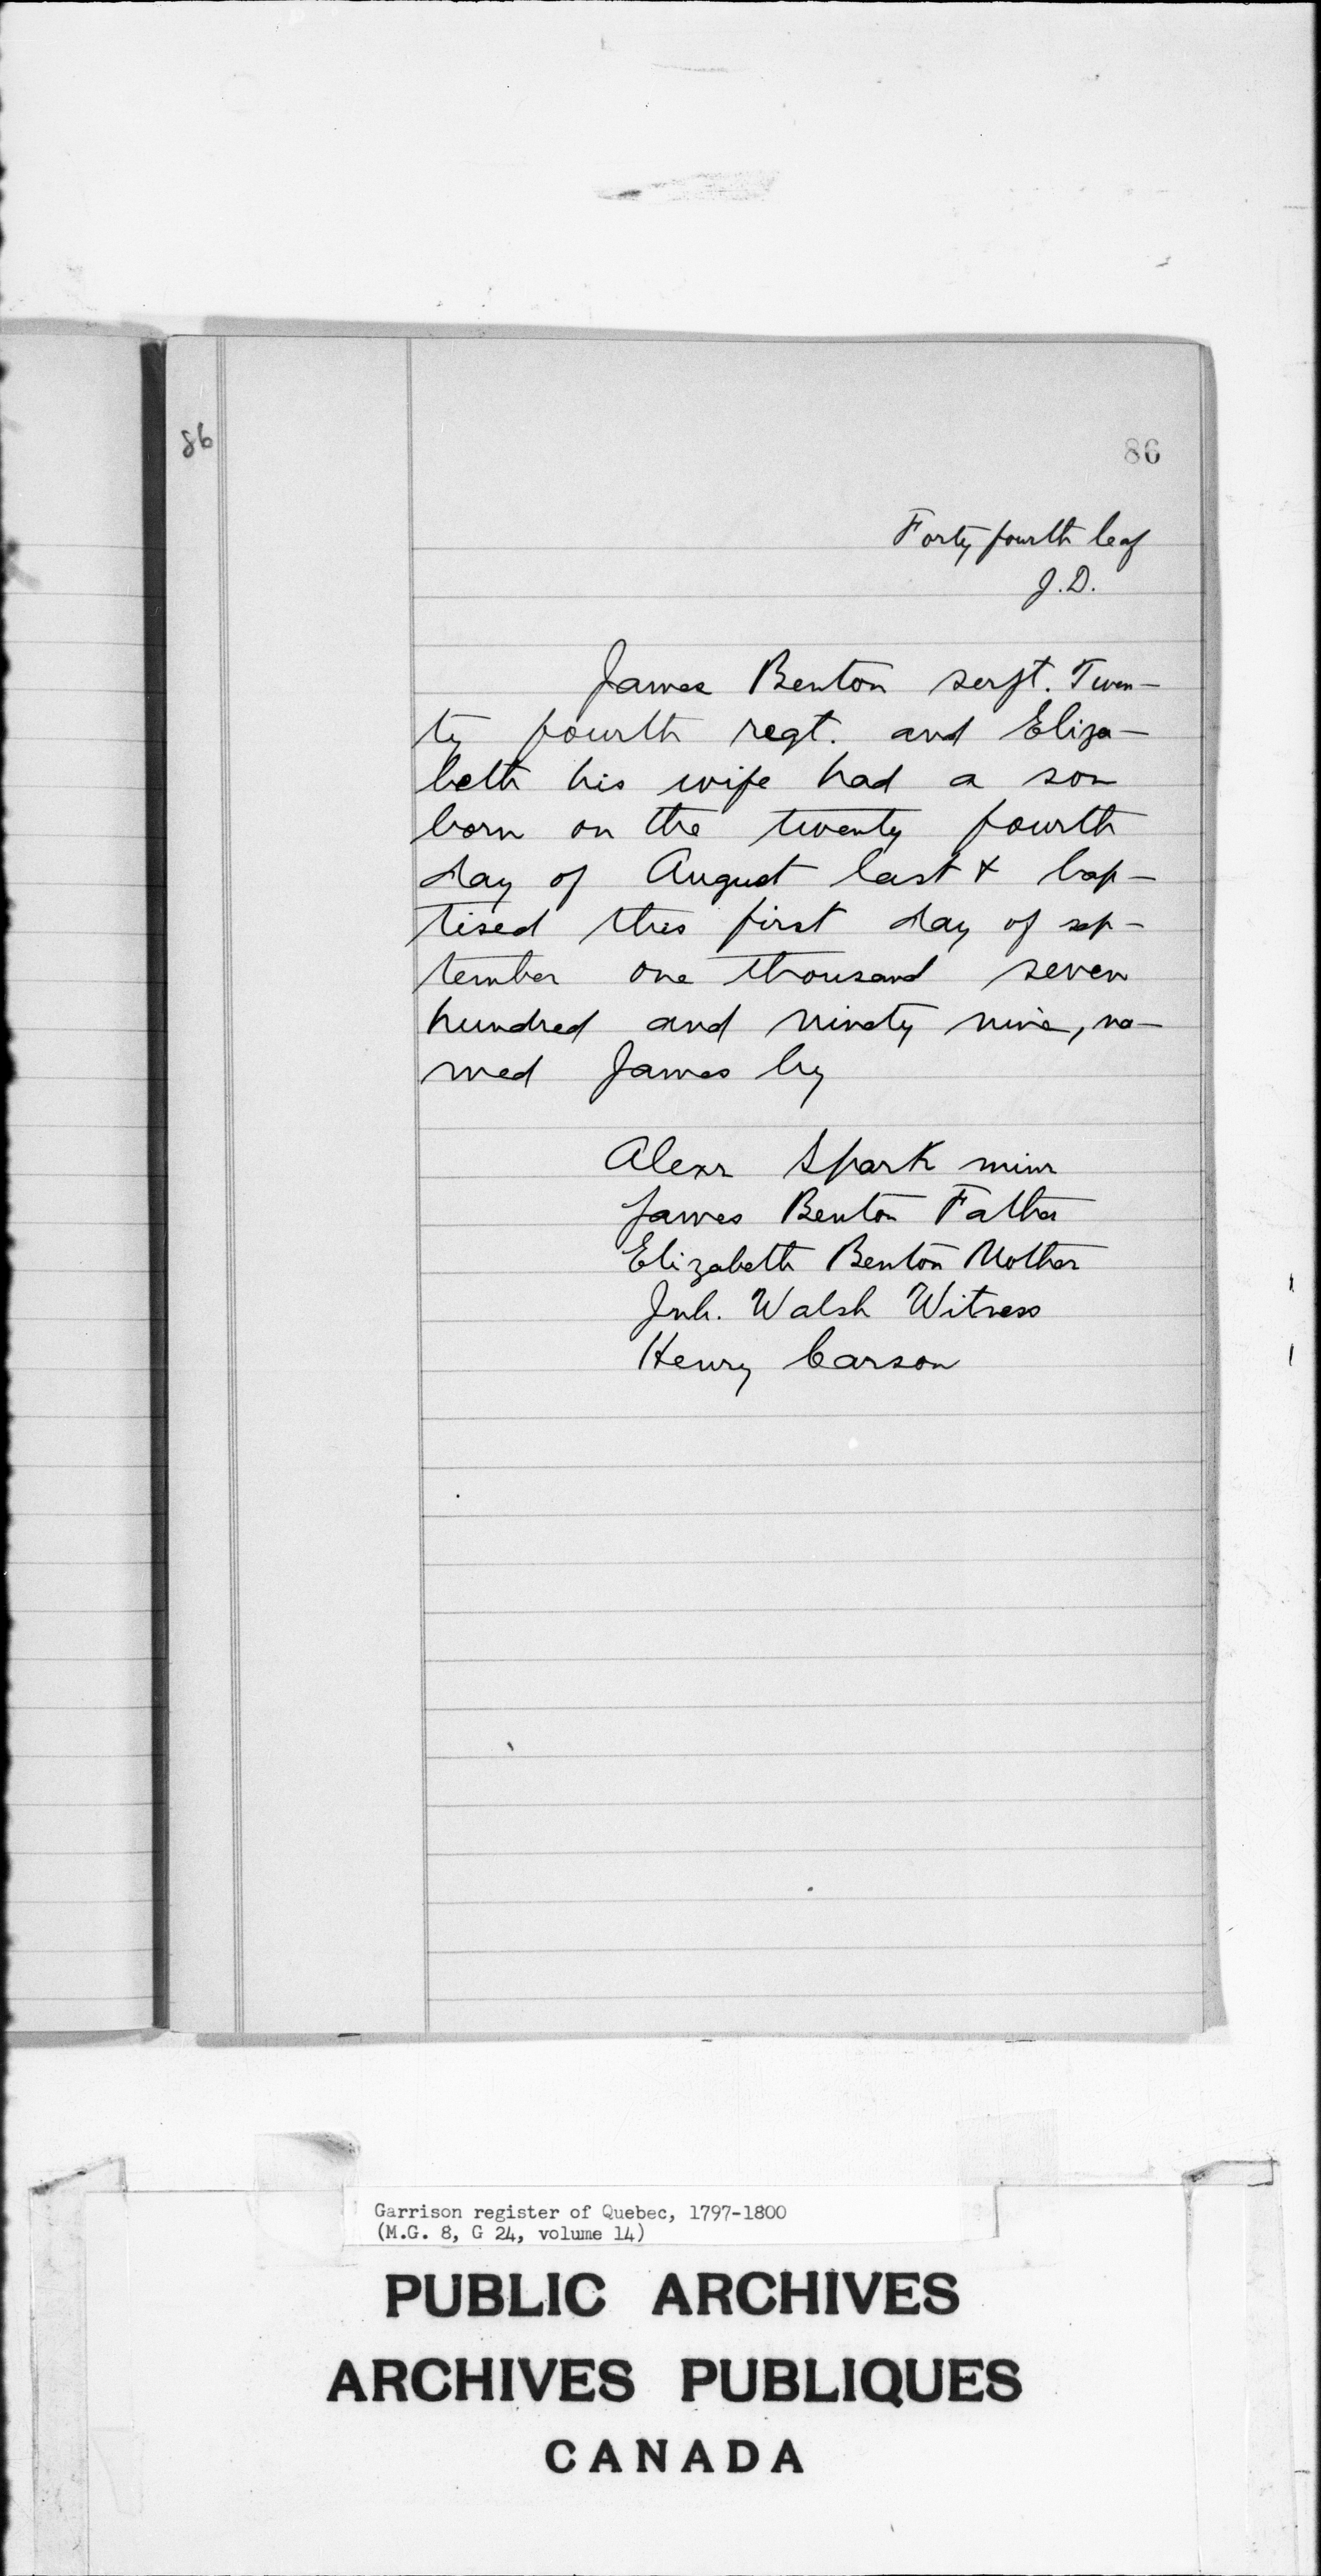 86
86
Forty fourth leaf
J.D.
James Benton serjt. Twen-
ty fourth regt. and Eliza-
beth his wife had a son
born on the twenty fourth
day of August last & bap-
tised this first day of sep-
tember one thousand seven
hundred and ninety nine, na-
med James by
Alexr Spark minr
James Benton Father
Elizabeth Benton Mother
Jnh. Walsh Witness
Henry Carson
Garrison register of Quebec, 1797-1800
(M.G. 8, G 24, volume 14)
PUBLIC ARCHIVES
ARCHIVES PUBLIQUES
CANADA